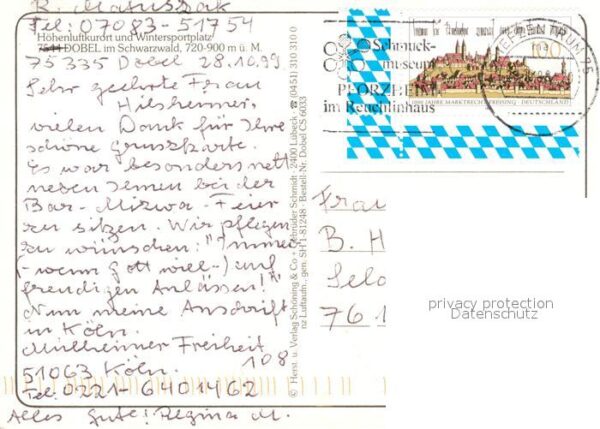 R. Matuszak
Tel: 07083-51754
Höhenluftkurort und Wintersportplatz
7544 DOBEL im Schwarzwald, 720-900 m ü. M.
75335 Dobel 28.10.99
Sehr geehrte Frau
Hilsheimer,
vielen Dank für Ihre
schöne grusskarte.
Es war besonders nett
neben Ihnen bei der
Bar-Mizwa-Feier
zu sitzen. Wir pflegen
zu wünschen: "Immer
(-wenn Gott will-) auf
freudigen Anlässen!"
Nun meine Anschrift
in Köln.
Mülheimer Freiheit
108
51063 Köln.
Tel: 0221-6401462
Alles gute! Regina M.
© Herst. u. Verlag Schöning & Co + Gebrüder Schmidt · 2400 Lübeck · ☎ (0451) 310 310 0
nz Luftaufn., gen. SH 1-81248 · Bestell-Nr. Dobel CS 6033
Schmuck-
museum
PFORZHEIM
im Reuchlinhaus
100
1000 JAHRE MARKTRECHT FREISING · DEUTSCHLAND
BRIEFZENTRUM 75
Frau
B. H
76 1
privacy protection
Datenschutz